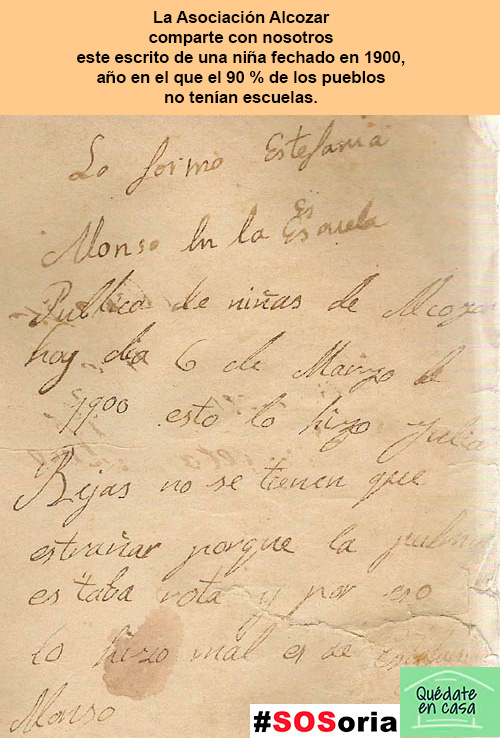 La Asociación Alcozar
comparte con nosotros
este escrito de una niña fechado en 1900,
año en el que el 90 % de los pueblos
no tenían escuelas.
Lo formo Estefania
Alonso en la Escuela
Publica de niñas de Alcoza
hoy dia 6 de Marzo de
1900 esto lo hizo Julia
Rijas no se tienen que
estrañar porque la pulma
estaba rota y por eso
lo hizo mal es de
Alonso
#SOSoria
Quédate
en casa